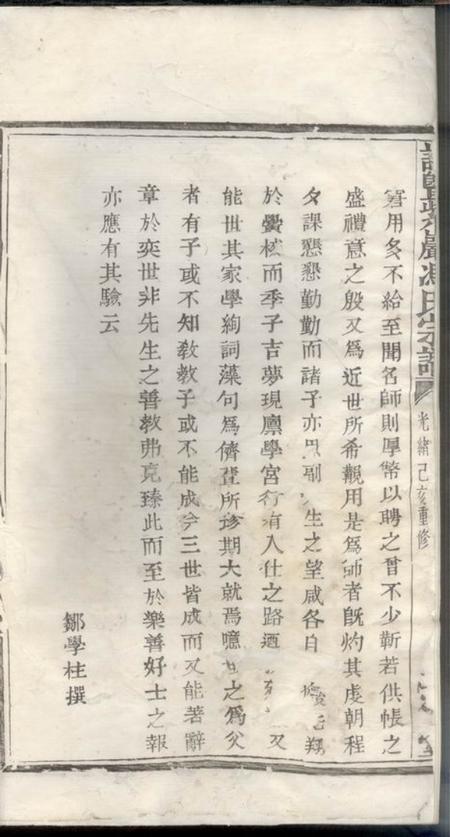 諸暨 馮氏宗譜
光緒己亥重修
用多不給至聞名師則厚幣以聘之曾不少靳若供帳之
盛禮意之殷又為近世所希觀用是為師者既灼其虔朝程
夕課懇懇勤勤而諸子亦思副 生之望咸各自 翔
於黌 而季子吉夢現廩學宮行有入仕之路迺 又
能世其家學絢詞藻句為儕輩所 期大就焉噫 之為父
者有子或不知教教子或不能成今三世皆成而又能著辭
章於奕世非先生之善教弗克臻此而至於樂善好士之報
亦應有其驗云
鄒學柱撰